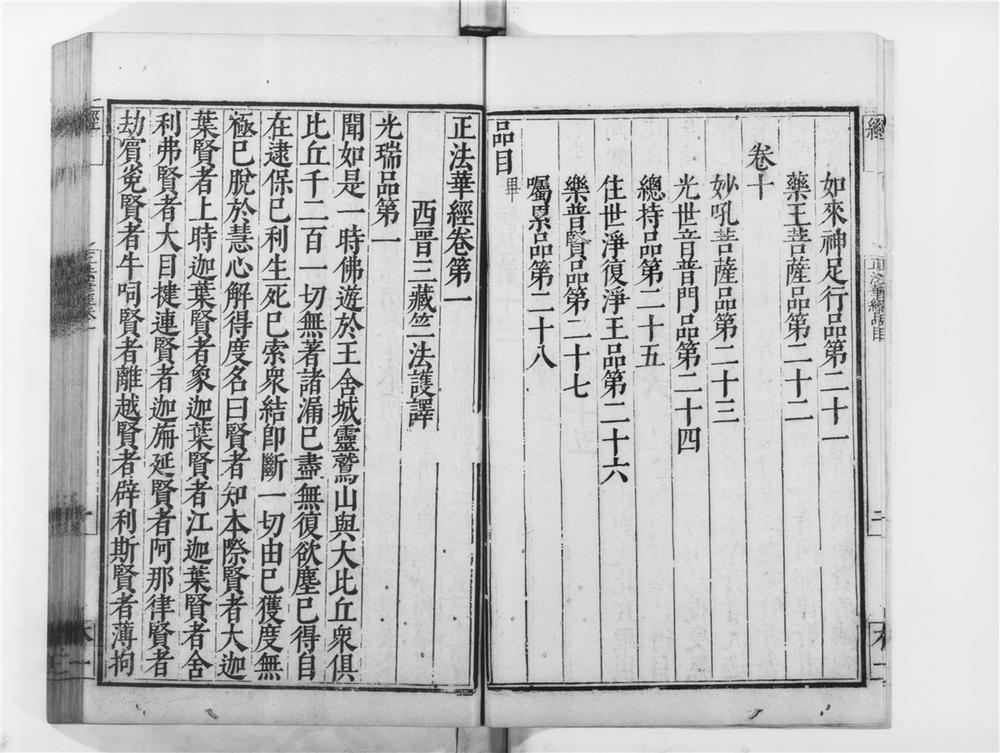 如來神足行品第二十一
藥王菩薩品第二十二
卷十
妙吼菩薩品第二十三
光世音普門品第二十四
總持品第二十五
住世淨復淨王品第二十六
樂普賢品第二十七
囑累品第二十八
品目 畢
正法華經卷第一
西晉三藏竺法護譯
光瑞品第一
聞如是一時佛遊於王舍城靈鷲山與大比丘衆俱
比丘千二百一切無著諸漏已盡無復欲塵已得自
在逮保己利生死已索衆結即斷一切由已獲度無
極已脫於慧心解得度名曰賢者知本際賢者大迦
葉賢者上時迦葉賢者象迦葉賢者江迦葉賢者舍
利弗賢者大目揵連賢者迦旃延賢者阿那律賢者
劫賔㝹賢者牛呞賢者離越賢者辟利斯賢者薄拘